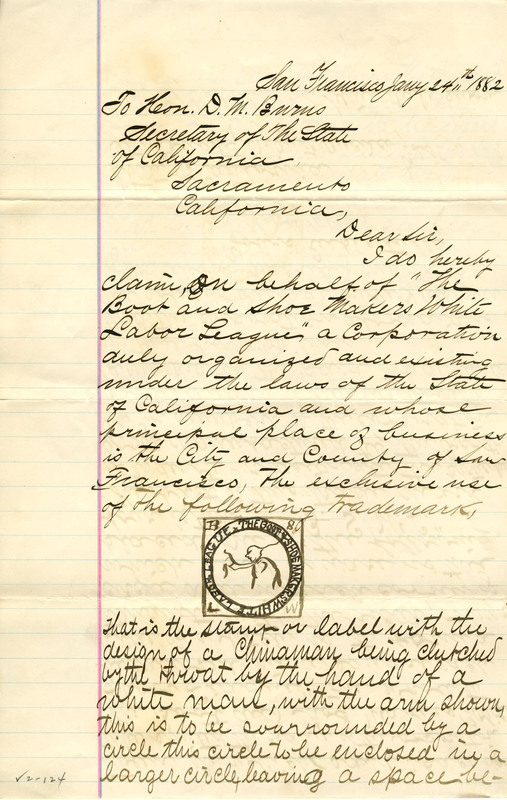 San Francisco Jany 24th 1882
To Hon. D. M. Burns
Secretary of the State
of California
Sacramento
California,
Dear Sir,
I do hereby
claim, On behalf of "The
Boot and Shoe Makers White
Labor League" a Corporation
duly organized and existing
under the laws of the State
of California and whose
principal place of business
is the City and County of San
Francisco, The exclusive use
of the following Trademark,
B & C
THE BOOT & SHOE MAKERS WHITE LABOR LEAGUE
L W
That is the stamp or label with the
design of a Chinaman being clutched
by the throat by the hand of a
white man, with the arm shown,
this is to be sourrounded by a
circle this circle to be enclosed in a
larger circle, leaving a space be-
v2-124